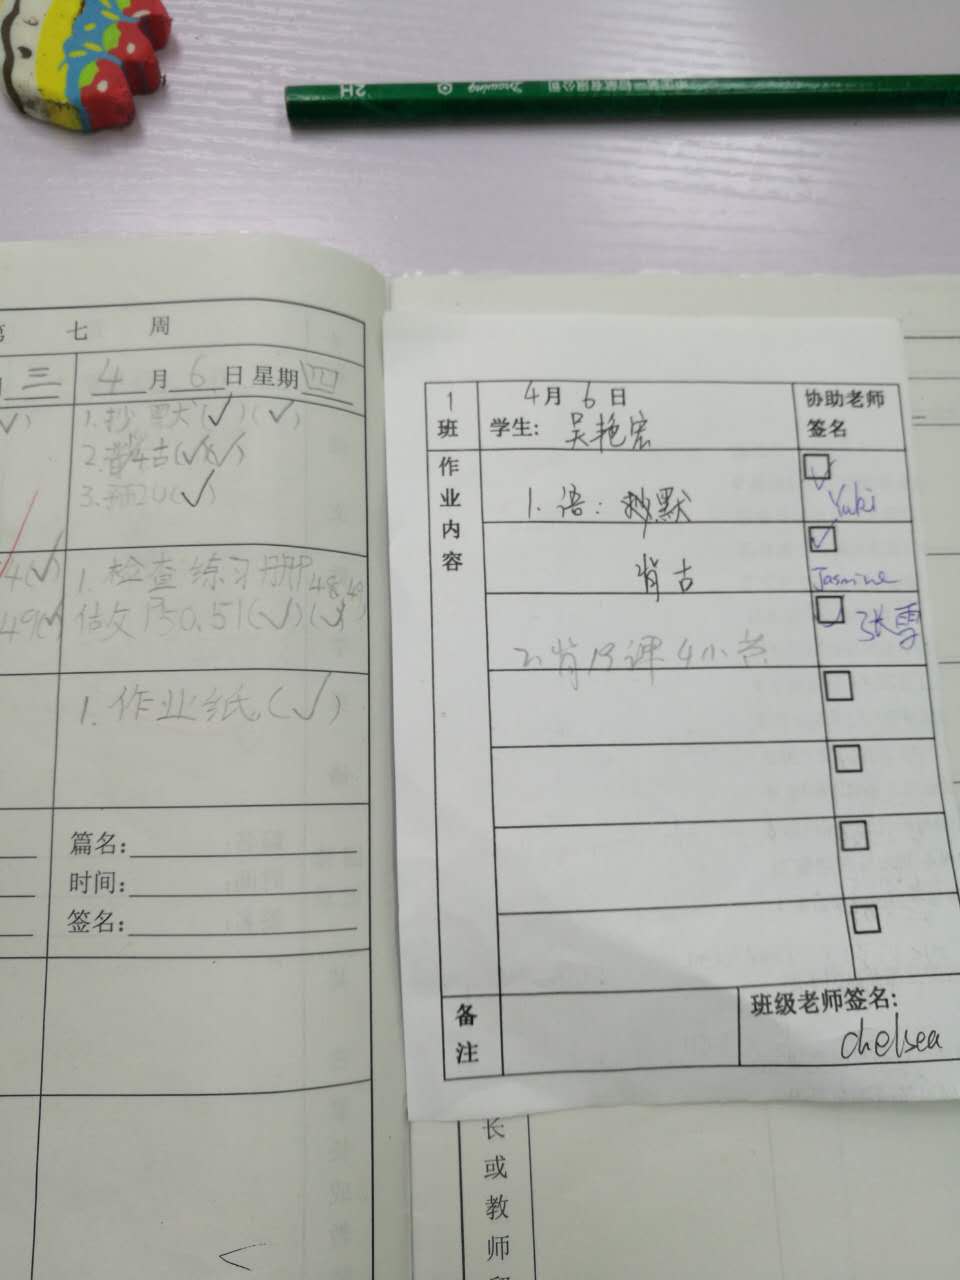 2H Drawing
七 周
三
4月6日 星期四
1.抄默(✓)(✓)
2.背古(✓)(✓)
3.预20(✓)
4(✓)
1.检查练习册P48,49
49(✓)
P50.51(✓)(✓)
1.作业纸(✓)
篇名:
时间:
签名:
1班
4月6日
学生: 吴艳宏
协助老师签名
作业内容
1.语: 抄默
Yuki
背古
Jasmine
2.背19课4小节
张雪
备注
班级老师签名:
chelsea
长或教师